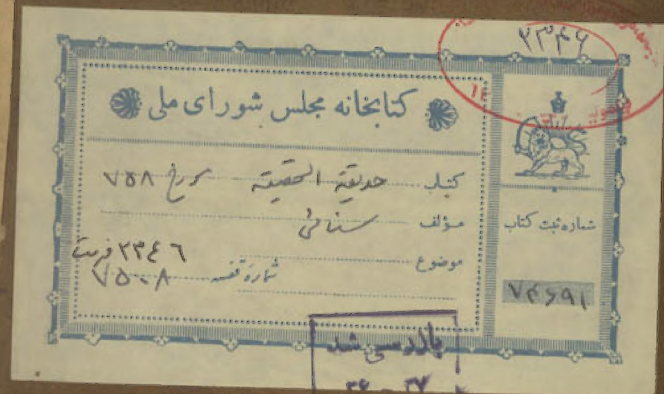 ۲۳۴۶
کتابخانه مجلس شورای ملی
کتاب حدیقة الحقیقة مورخ ۷۵۸
مؤلف سنائی
موضوع
۲۳۴۶ فهرست
شماره قفسه ۷۵۰۸
شماره ثبت کتاب
۷۴۶۹۱
بازرسی شد
۳۶ - ۳۷